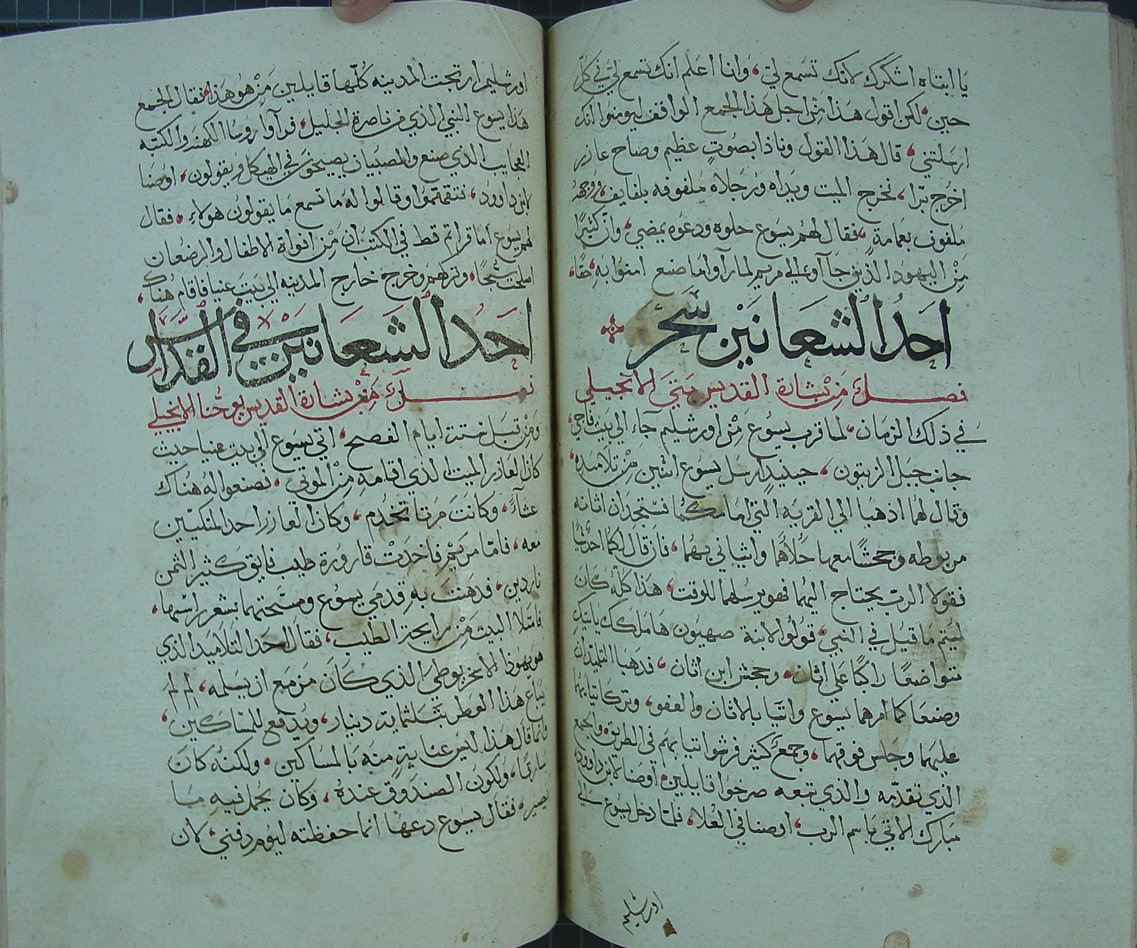 يا ابتاه اشكرك لانك تسمع لي، وانا اعلم انك تسمع لي في كل
حين، لكن اقول هذا من اجل هذا الجمع الواقف ليومنوا انك
ارسلتني، قال هذا القول ونادا بصوت عظيم وصاح عازر
اخرج برا، فخرج الميت ويداه ورجلاه ملفوفه بلفايف، ووجهه
ملفوف بعمامة، فقال لهم يسوع حلوه ودعوه يمضي، وان كثيرا
من اليهود الذين جاآو الي مريم لما راو ما صنع امنوا به حقا،
احد الشعانين سحر
فصل من بشارة القديس متي الانجيلي
في ذلك الزمان، لما قرب يسوع من اورشليم جاء الي بيت فاجي
جانب جبل الزيتون، حينيد ارسل يسوع اثنين من تلاميده
وقال لهما اذهبا الي القريه التي امامكما تستجدان اتانه
مربوطه وجحشا معها حلاهما واتياني بهما، فان قال لكما احد شيا
فقولا الرب يحتاج اليهما فهو يرسلهما للوقت، هذا كله كان
ليتم ما قيل في النبي، قولوا لابنة صهيون ها ملكك ياتيك
متواضعا راكبا علي اتان، وجحش ابن اتان، فدهبا التلميدان
وصنعا كما امرهما يسوع واتيا بالاتان والعفو، وتركا ثيابهما
عليهما وجلس فوقهما، وجمع كثير فرشوا ثيابهم في الطريق، والجمع
الذي تقدمه والذي تبعه صرخوا قايلين، اوصنا لابن داوود
مبارك الاتي باسم الرب، اوصنا في العلا، فلما دخل يسوع الي
اورشليم
اورشليم ارتجت المدينه كلها قايلين من هو هذا، فقال الجمع
هذا يسوع النبي الذي من ناصرة الجليل، فراوا روسا الكهنه والكتبه
العجايب الذي صنع والصبيان يصيحون في الهيكل ويقولون، اوصنا
لابن داوود، فتقمقموا وقالوا له ما تسمع ما يقولون هولاء، فقال
لهم يسوع اما قراتم قط في الكتب ان من افواه الاطفال والرضعان
اصلحت سبحا، وتركهم وخرج خارج المدينه الي بيت عنيا فاقام هناك،
احد الشعانين في القداس
فصل من بشارة القديس يوحنا الانجيلي
ومن قبل ستة ايام الفصح، اتي يسوع الي بيت عنيا حيث
كان العازر الميت الذي اقامه من الموتي، فصنعوا له هناك
عشاء، وكانت مرتا تخدم، وكان العازر احد المتكيين
معه، فاما مريم فاخدت قارورة طيب فايق كثير الثمن
ناردين، فدهنت به قدمي يسوع ومسحتهما بشعر راسها،
فامتلا البيت من رايحة الطيب، فقال احد التلاميد الذي
هو يهودا الاسخريوطي الذي كان مزمع ان يسلمه، لم لم
يباع هذا العطر بثلثمايت دينار، ويدفع للمساكين،
وانما قال هذا ليس عناية منه بالمساكين، ولكنه كان
سارقا، ولكون الصندوق عنده، وكان يحمل فيه ما
يصير، فقال يسوع دعها انما حفظته ليوم دفني، لان